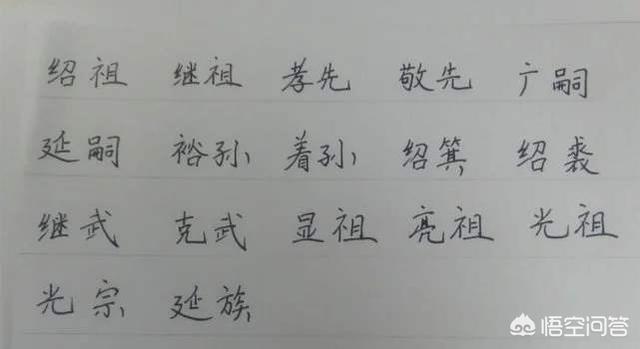 绍祖 继祖 孝先 敬先 广嗣
延嗣 裕孙 着孙 绍箕 绍裘
继武 克武 显祖 亮祖 光祖
光宗 延族
悟空问答